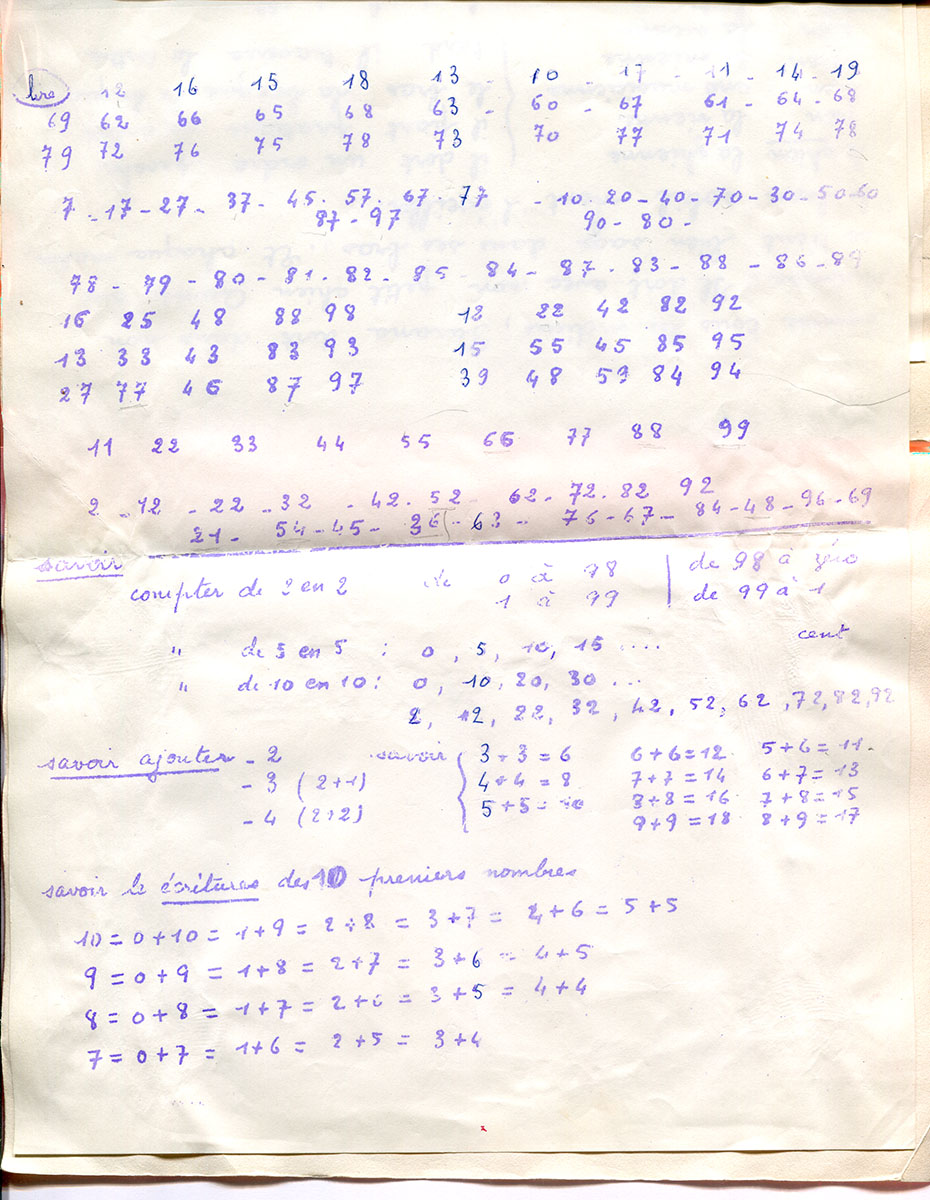 lire 12 16 15 18 13 - 10 - 17 - 11 - 14 - 19
69 62 66 65 68 63 - 60 - 67 61 - 64 - 68
79 72 76 75 78 73 70 77 71 74 78
7 - 17 - 27 - 37 - 45 - 57 - 67 - 77 - 10 - 20 - 40 - 70 - 30 - 50 - 60
87 - 97 90 - 80 -
78 - 79 - 80 - 81 - 82 - 85 - 84 - 87 - 83 - 88 - 86 - 89
16 25 48 88 98 12 22 42 82 92
13 33 43 83 93 15 55 45 85 95
27 77 46 87 97 39 48 59 84 94
11 22 33 44 55 66 77 88 99
2 - 12 - 22 - 32 - 42 - 52 - 62 - 72 - 82 92
21 - 54 - 45 - 36 - 63 - 76 - 67 - 84 - 48 - 96 - 69
savoir
compter de 2 en 2 de 0 à 98 de 98 à zéro
1 à 99 de 99 à 1
" de 5 en 5 : 0, 5, 10, 15 .... cent
" de 10 en 10 : 0, 10, 20, 30 ...
2, 12, 22, 32, 42, 52, 62, 72, 82, 92
savoir ajouter - 2 savoir { 3 + 3 = 6 6 + 6 = 12 5 + 6 = 11
- 3 (2+1) 4 + 4 = 8 7 + 7 = 14 6 + 7 = 13
- 4 (2+2) 5 + 5 = 10 8 + 8 = 16 7 + 8 = 15
9 + 9 = 18 8 + 9 = 17
savoir le écritures des 10 premiers nombres
10 = 0 + 10 = 1 + 9 = 2 + 8 = 3 + 7 = 4 + 6 = 5 + 5
9 = 0 + 9 = 1 + 8 = 2 + 7 = 3 + 6 = 4 + 5
8 = 0 + 8 = 1 + 7 = 2 + 6 = 3 + 5 = 4 + 4
7 = 0 + 7 = 1 + 6 = 2 + 5 = 3 + 4